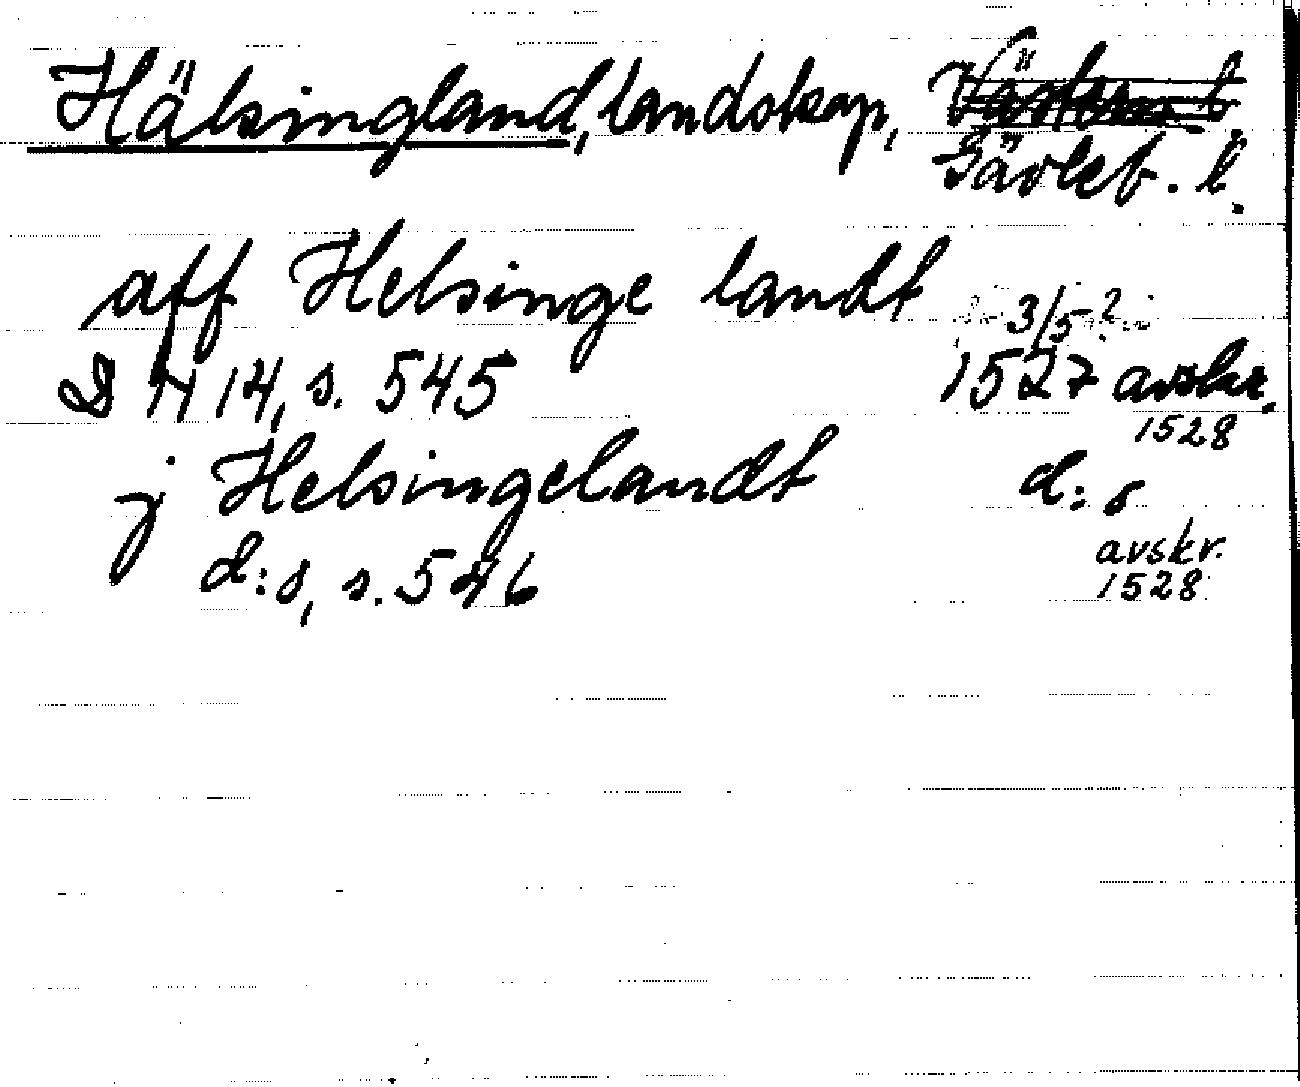 Hälsingland, landskap,
Gävleb. l.
aff Helsinge landt 3/5 ?
D H 14, s. 545 1527 avskr. 1528
j Helsingelandt d:o
d:o, s. 546 avskr. 1528